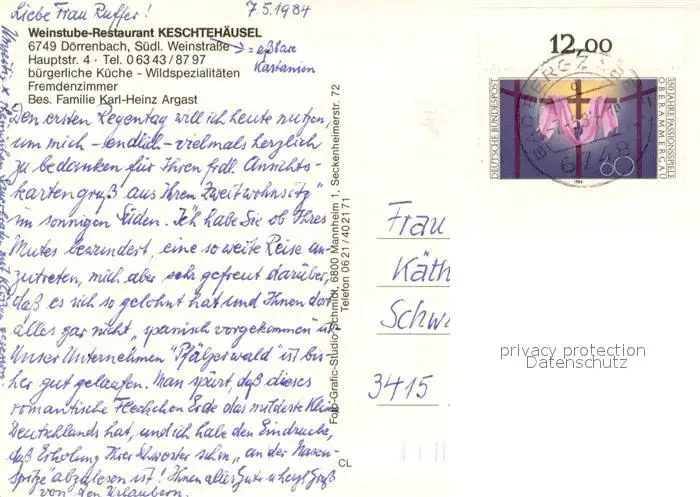 Liebe Frau Ruffer! 7.5.1984
Weinstube-Restaurant KESCHTEHÄUSEL
6749 Dörrenbach, Südl. Weinstraße
= eßbare
Kastanien
Hauptstr. 4 · Tel. 0 63 43 / 87 97
bürgerliche Küche - Wildspezialitäten
Fremdenzimmer
Bes. Familie Karl-Heinz Argast
Den ersten Regentag will ich heute nutzen,
um mich - endlich - vielmals herzlich
zu bedanken für Ihren frdl. Ansichts-
kartengruß "aus Ihrem Zweitwohnsitz"
im sonnigen Süden. Ich habe Sie ob Ihres
Mutes bewundert, eine so weite Reise an-
zutreten, mich aber sehr gefreut darüber,
daß es sich so gelohnt hat und Ihnen dort
alles gar nicht "spanisch vorgekommen" ist.
Unser Unternehmen "Pfälzerwald" ist bis-
her gut gelaufen. Man spürt, daß dieses
romantische Fleckchen Erde das mildeste Klima
Deutschlands hat, und ich habe den Eindruck,
daß Erholung Ihrer Schwester schon "an der Nasen-
spitze" abzulesen ist! Ihnen alles Gute u. herzl. Gruß
von den Urlaubern.
Foto-Grafic-Studio Schmidt, 6800 Mannheim 1, Seckenheimerstr. 72
Telefon 06 21 / 40 21 71
CL
12,00
DEUTSCHE BUNDESPOST
350 JAHRE PASSIONSSPIELE
OBERAMMERGAU
60
1984
BAD BERGZABERN
6748
Frau
Käth
Schw
3415
privacy protection
Datenschutz